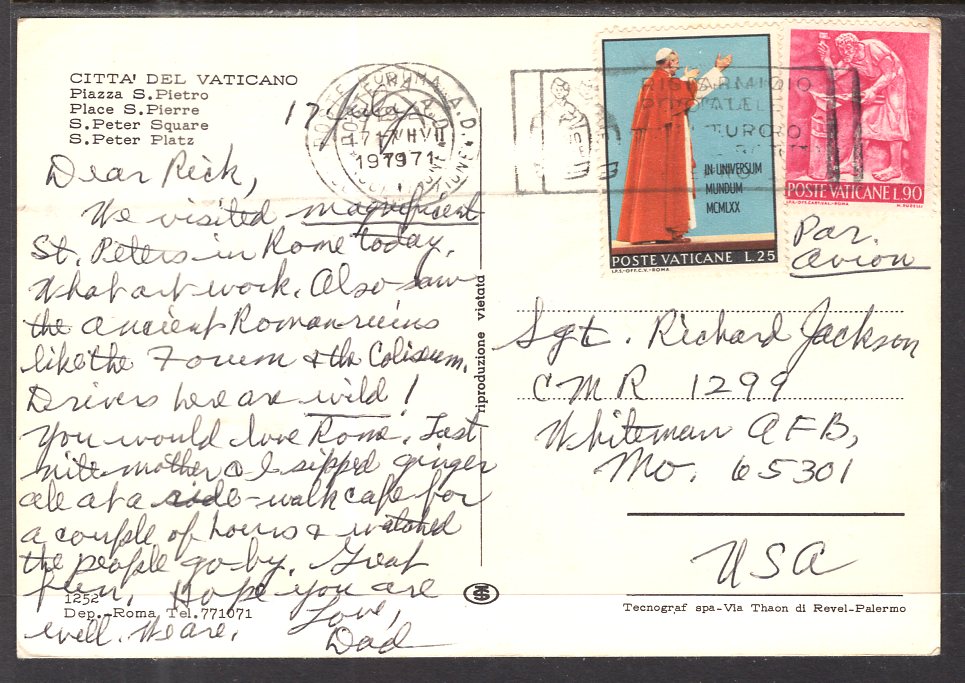 CITTA' DEL VATICANO
Piazza S.Pietro
Place S.Pierre
S.Peter Square
S.Peter Platz
17 July
1971
RISPARMIO
POSTALE
IN UNIVERSUM
MUNDUM
MCMLXX
POSTE VATICANE L.25
I.P.S.-OFF.C.V.-ROMA
POSTE VATICANE L.90
I.P.S.-OFF.CART.VAL.-ROMA
Par.
avion
Dear Rick,
We visited magnificent
St. Peters in Rome today.
What art work. Also saw
the ancient Roman ruins
like the Forum & the Coliseum.
Drivers here are wild!
You would love Rome. Last
nite mother & I sipped ginger
ale at a side-walk cafe for
a couple of hours & watched
the people go by. Great
fun. Hope you are
well. We are.
Love,
Dad
riproduzione vietata
Sgt. Richard Jackson
CMR 1299
Whiteman AFB,
Mo. 65301
USA
1252
Dep.-Roma Tel.771071
Tecnograf spa-Via Thaon di Revel-Palermo